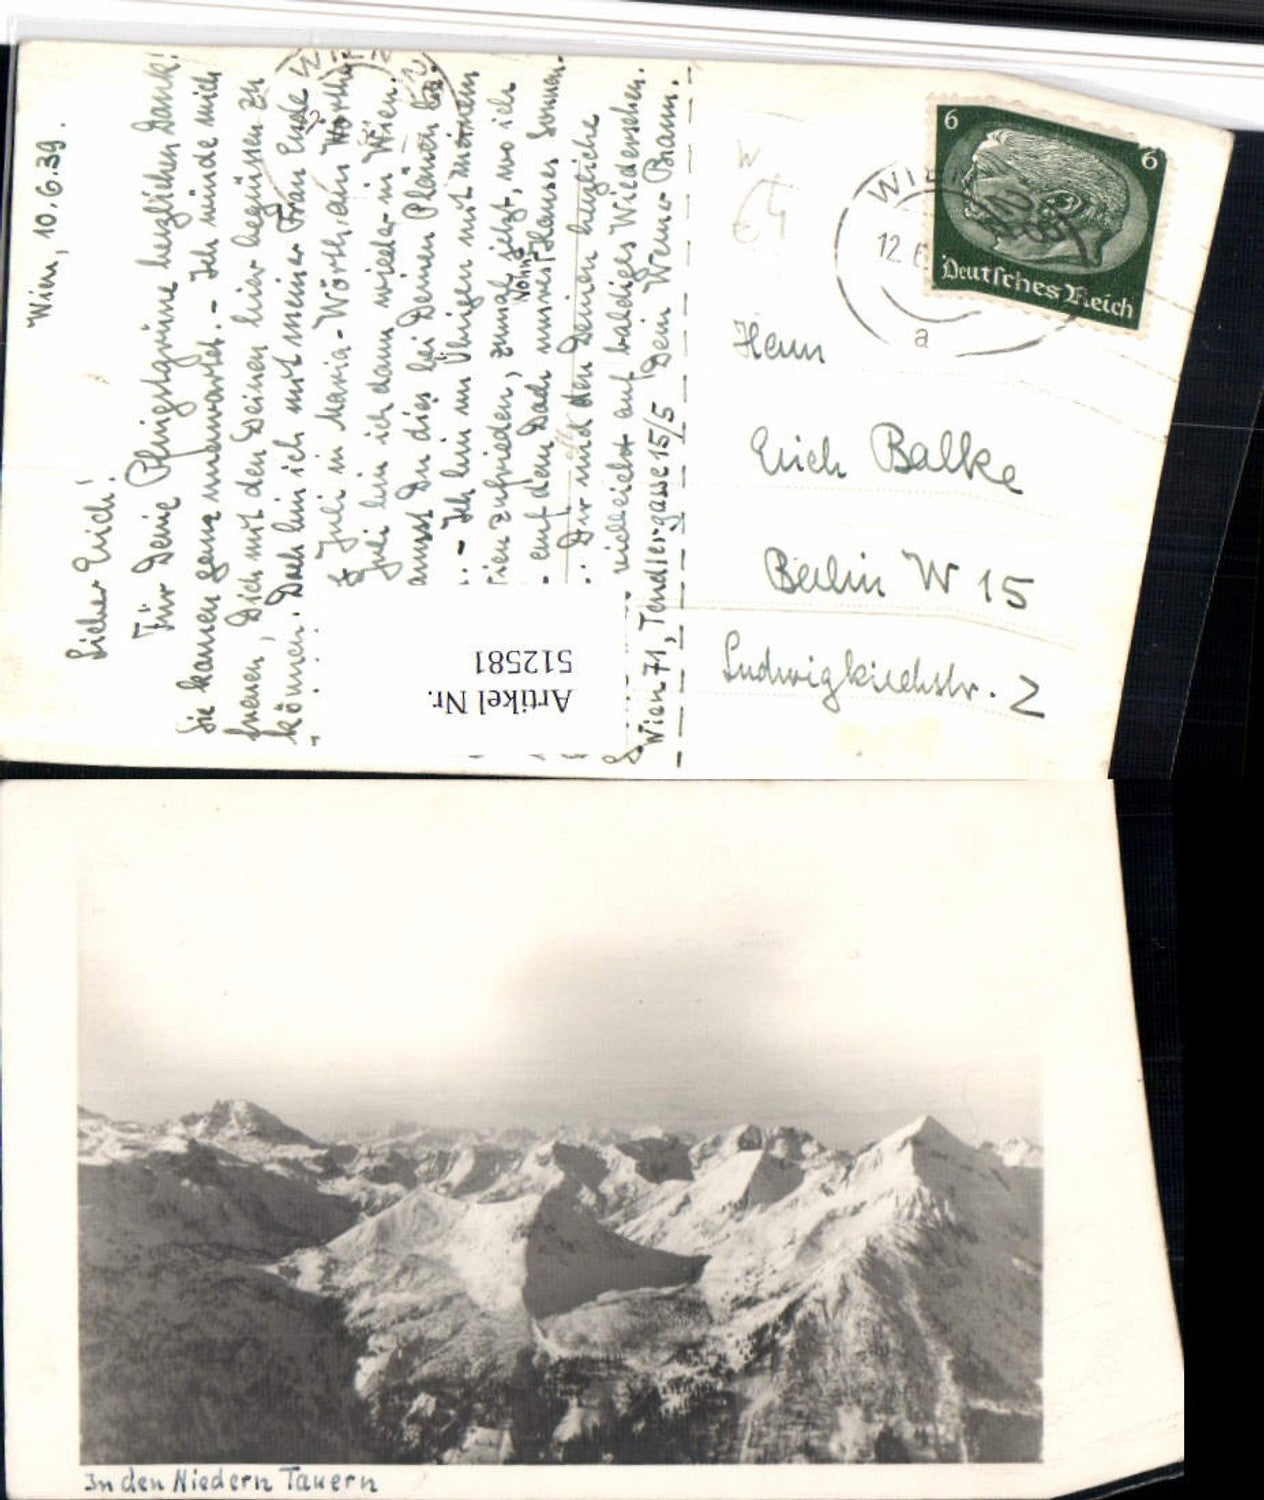 Wien, 10.6.39.
Lieber Erich!
Für Deine Pfingstgrüße herzlichen Dank!
Sie kamen ganz unerwartet. - Ich würde mich
freuen, Dich mit den Deinen hier begrüßen zu
können. Doch bin ich mit meiner Frau Ende
Juli in Maria-Wörth am Wörther
Juli bin ich dann wieder in Wien.
Du dies bei Deinen Plänen
. - Ich bin im Übrigen mit meinem
zufrieden, zumal jetzt, wo ich
auf dem Dach unseres Wohn Hauses Sonnen-
Dir und den Deinen herzliche
vielleicht auf baldiges Wiedersehen.
Dein Werner Braun.
Wien 71, Tendlergasse 15/5
WIEN
WIEN
12 6
a
6
6
Deutsches Reich
W
Herrn
Erich Balke
Berlin W 15
Ludwigkirchstr. 2
Artikel Nr.
512581
In den Niedern Tauern